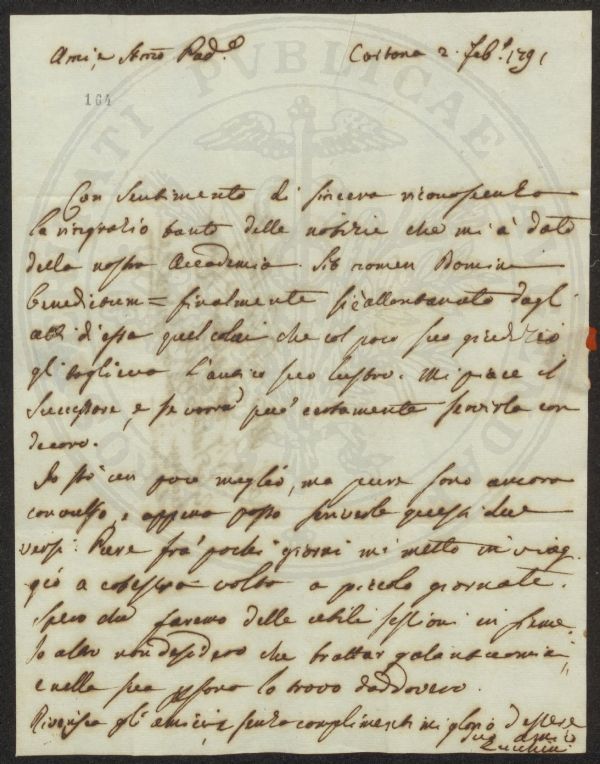 Cortona 2. Feb.° 1791
164
Con sentimento di sincera riconoscenza
la ringrazio tanto delle notizie che mi à dato
della nostra Accademia. Sit nomen Domini
benedictum = finalmente si è allontanato dagl'
atti d'essa quel colui che col poco suo giudizio
gli toglieva l'antico suo lustro. Mi piace il
Successore, e se vorrà può certamente servirla con
decoro.
Io stò un poco meglio, ma pure sono ancora
convulso, e appena posso scriverle questi due
versi. Pure frà pochi giorni mi metto in viag
gio a cotesta volta a piccole giornate.
Spero che faremo delle utili sessioni insieme
Io altro non desidero che trattar galantuomini,
e nella sua persona lo trovo daddovero.
Riverisca gli amici, e senza complimenti mi glorio d'essere
suo amico
Zucchini